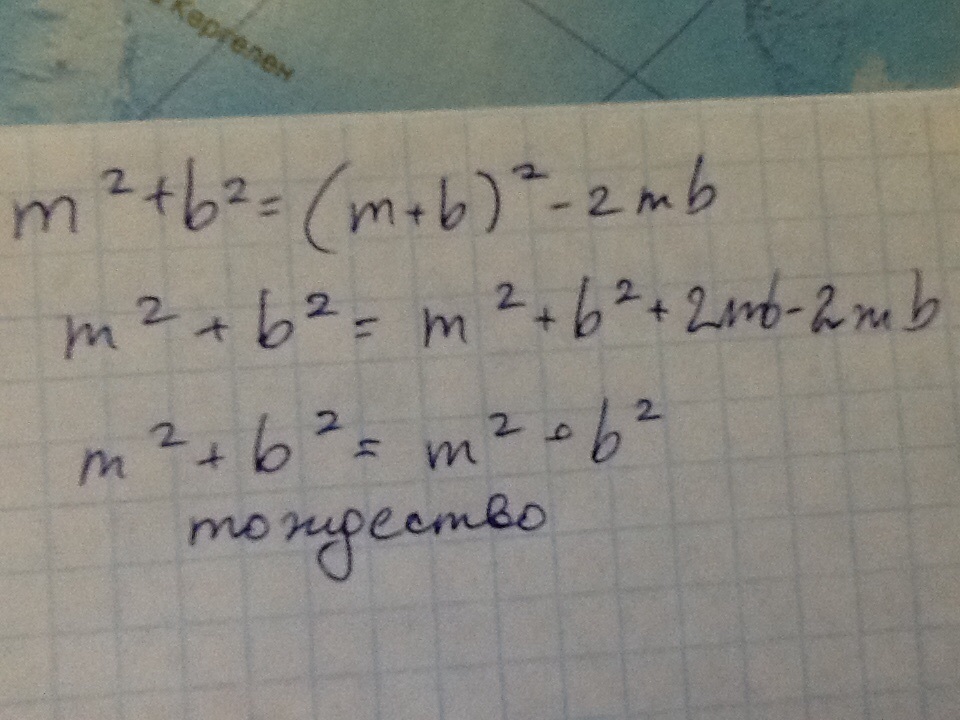 Кергелен
m² + b² = (m+b)² - 2mb
m² + b² = m² + b² + 2mb - 2mb
m² + b² = m² + b²
тождество